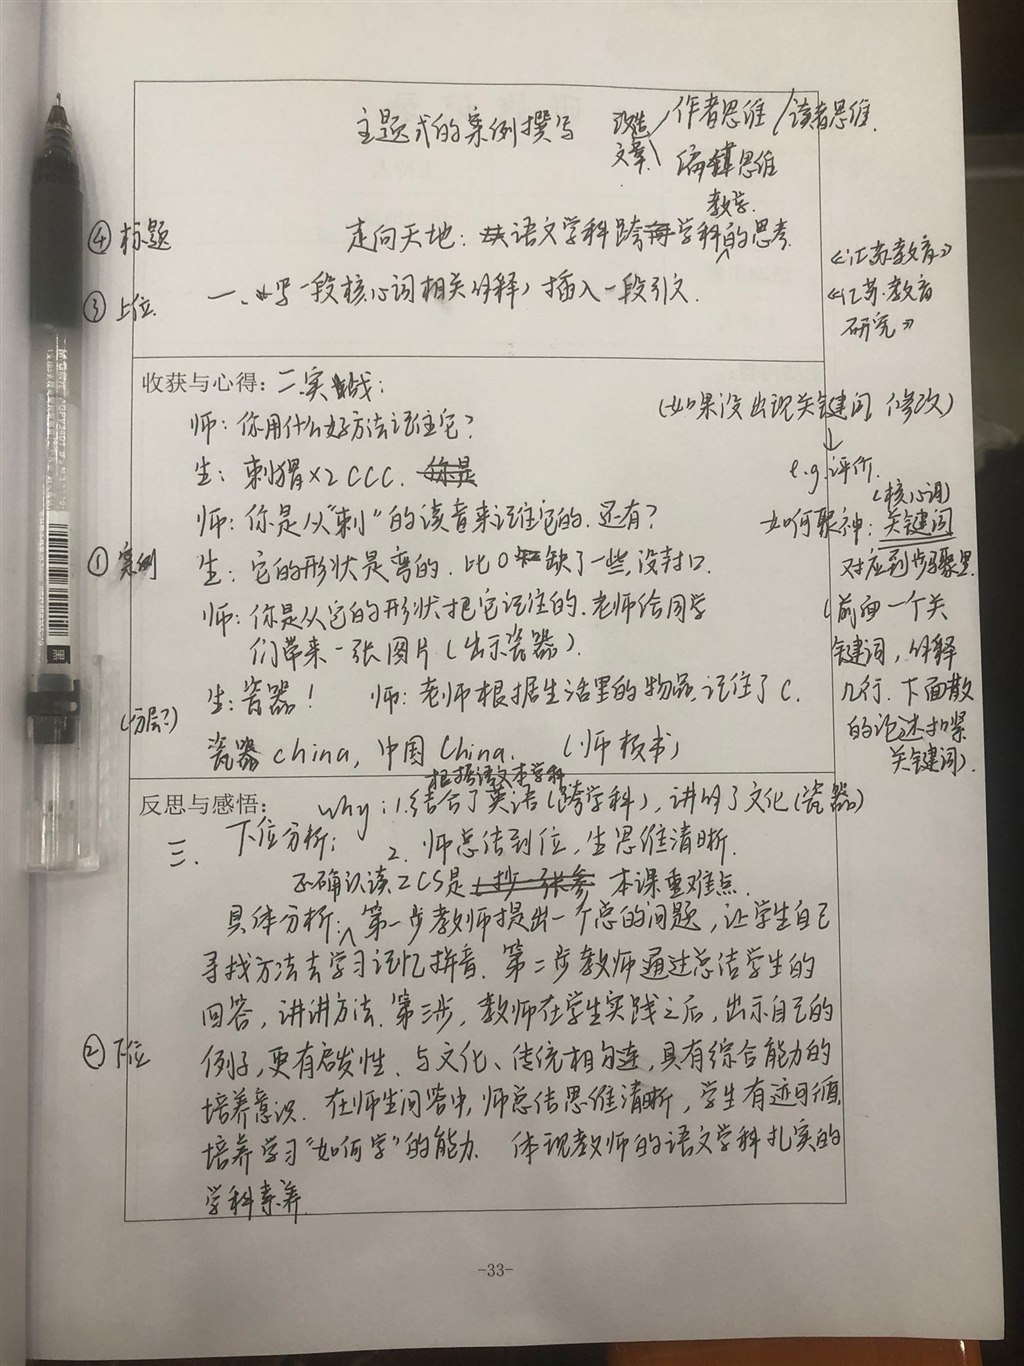 主题式的案例撰写
改造 作者思维 / 读者思维.
文章 编辑思维
教学.
④ 标题 走向天地: 语文学科跨学科的思考.
③ 上位. 一、写一段核心词相关解释, 插入一段引文.
《江苏教育》
《江苏教育
研究》
收获与心得: 二实战:
师: 你用什么好方法记住它?
生: 刺猬×2 CCC. 你是
师: 你是从“刺”的读音来记住它的. 还有?
① 案例 生: 它的形状是弯的. 比O缺了一些, 没封口.
师: 你是从它的形状把它记住的. 老师给同学
们带来一张图片(出示瓷器).
生: 瓷器! 师: 老师根据生活里的物品, 记住了C.
(分层?)
瓷器china, 中国China. (师板书)
(如果没出现关键词 修改)
↓
e.g. 评价.
(核心词)
如何聚神: 关键词
对应到步骤里.
(前面一个关
键词, 解释
几行. 下面散
的论述扣紧
关键词).
反思与感悟: why: 1.结合了英语(跨学科), 讲明了文化(瓷器)
根据语文本学科
三. 下位分析: 2. 师总结到位, 生思维清晰.
正确认读ZCS是 本课重难点.
具体分析: 第一步教师提出一个总的问题, 让学生自己
寻找方法去学习记忆拼音. 第二步教师通过总结学生的
回答, 讲讲方法. 第三步, 教师在学生实践之后, 出示自己的
② 下位 例子, 更有启发性. 与文化、传统相勾连, 具有综合能力的
培养意识. 在师生问答中, 师总结思维清晰, 学生有迹可循,
培养学习“如何学”的能力. 体现教师的语文学科扎实的
学科素养.
-33-